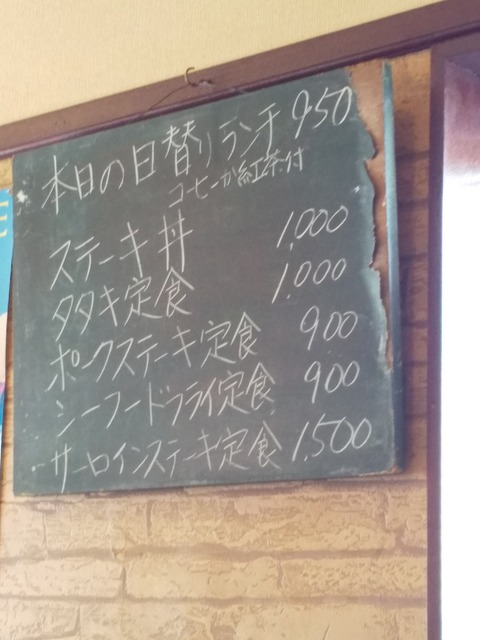 本日の日替りランチ 950
コーヒーか紅茶付
ステーキ丼 1,000
タタキ定食 1,000
ポークステーキ定食 900
シーフードフライ定食 900
サーロインステーキ定食 1,500